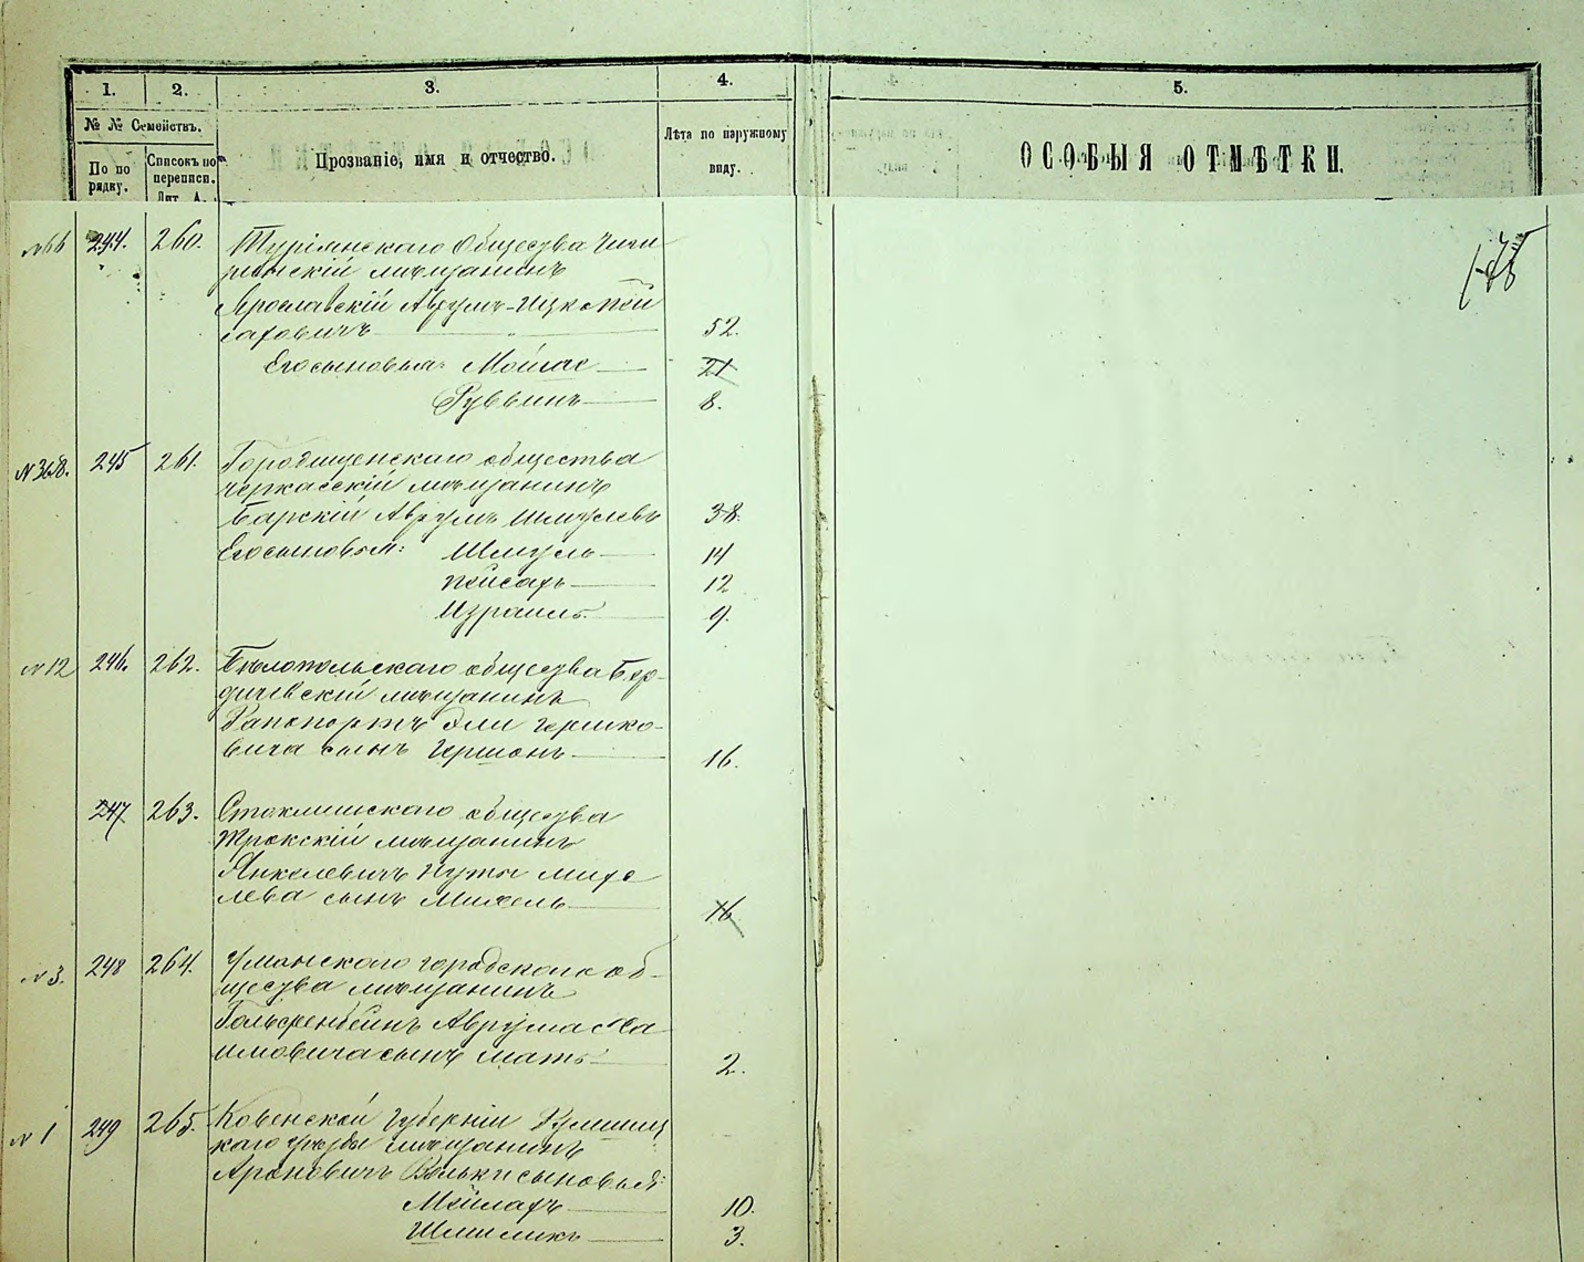 1. 2. 3. 4. 5.
№ № Семействъ.
По порядку.
Списокъ по переписи. Лит. А.
Прозваніе, имя и отчество.
Лѣта по наружному виду.
ОСОБЫЯ ОТМѢТКИ.
№66 244. 260. Общества Чиги
ринскій мѣщанинъ
Ярославскій Аврумъ-Ицко Пей
саховичъ 52.
Его сыновья: Мойше 21
Руввинъ 8.
245 261. Городищенскаго общества
черкасскій мѣщанинъ
Барскій Аврумъ Шмулевъ 38.
Его сыновья: Шмуль 14
Пейсахъ 12
Израиль 9.
№12 246. 262. Бѣлопольскаго общества Бер-
дичевскій мѣщанинъ
Рапопортъ Эли Гершко-
вича сынъ Гершонъ 16.
247 263. Стоклишскаго общества
Трокскій мѣщанинъ
Янкелевичъ Нуты Михе
лева сынъ Михель 16
№3. 248 264. Уманскаго городскаго об-
щества мѣщанинъ
Аврума Ха
имовича сынъ Мать 2.
№1 249 265. Ковенской Губерніи
мѣщанинъ
Ароновичъ Вольки сыновья:
Мейлахъ 10.
Шмиликъ 3.